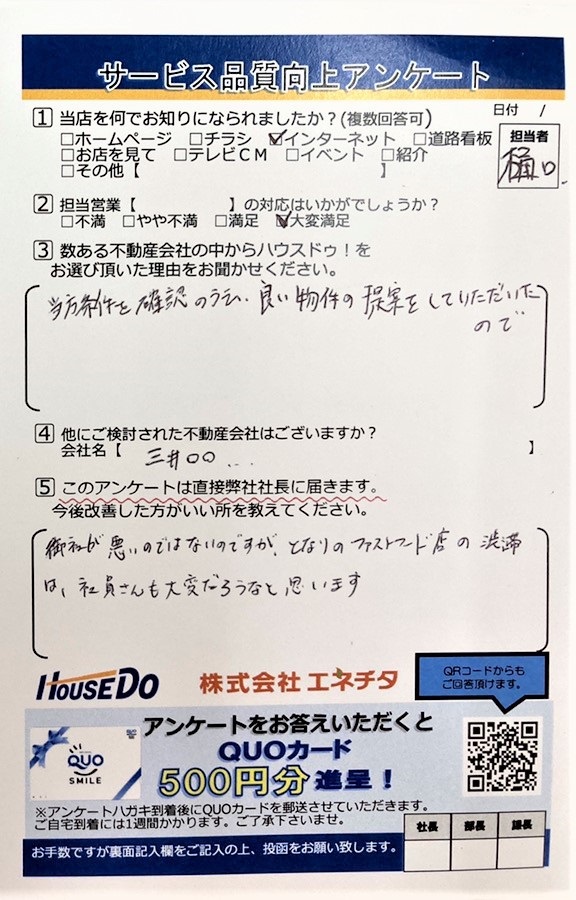 サービス品質向上アンケート
日付 /
1 当店を何でお知りになられましたか？(複数回答可)
□ホームページ □チラシ ☑インターネット □道路看板
□お店を見て □テレビＣＭ □イベント □紹介
□その他【 】
担当者
樋口
2 担当営業【 】の対応はいかがでしょうか？
□不満 □やや不満 □満足 ☑大変満足
3 数ある不動産会社の中からハウスドゥ！を
お選び頂いた理由をお聞かせください。
当方条件を確認のうえ、良い物件の提案をしていただいた
ので
4 他にご検討された不動産会社はございますか？
会社名【 三井〇〇 .... 】
5 このアンケートは直接弊社社長に届きます。
今後改善した方がいい所を教えてください。
御社が悪いのではないのですが、となりのファストフード店の渋滞
は、社員さんも大変だろうなと思います
HOUSEDO 株式会社 エネチタ
QRコードからも
ご回答頂けます。
アンケートをお答えいただくと
QUOカード
500円分 進呈！
QUO
SMILE
※アンケートハガキ到着後にQUOカードを郵送させていただきます。
ご自宅到着には1週間かかります。ご了承下さいませ。
社長 部長 課長
お手数ですが裏面記入欄をご記入の上、投函をお願い致します。